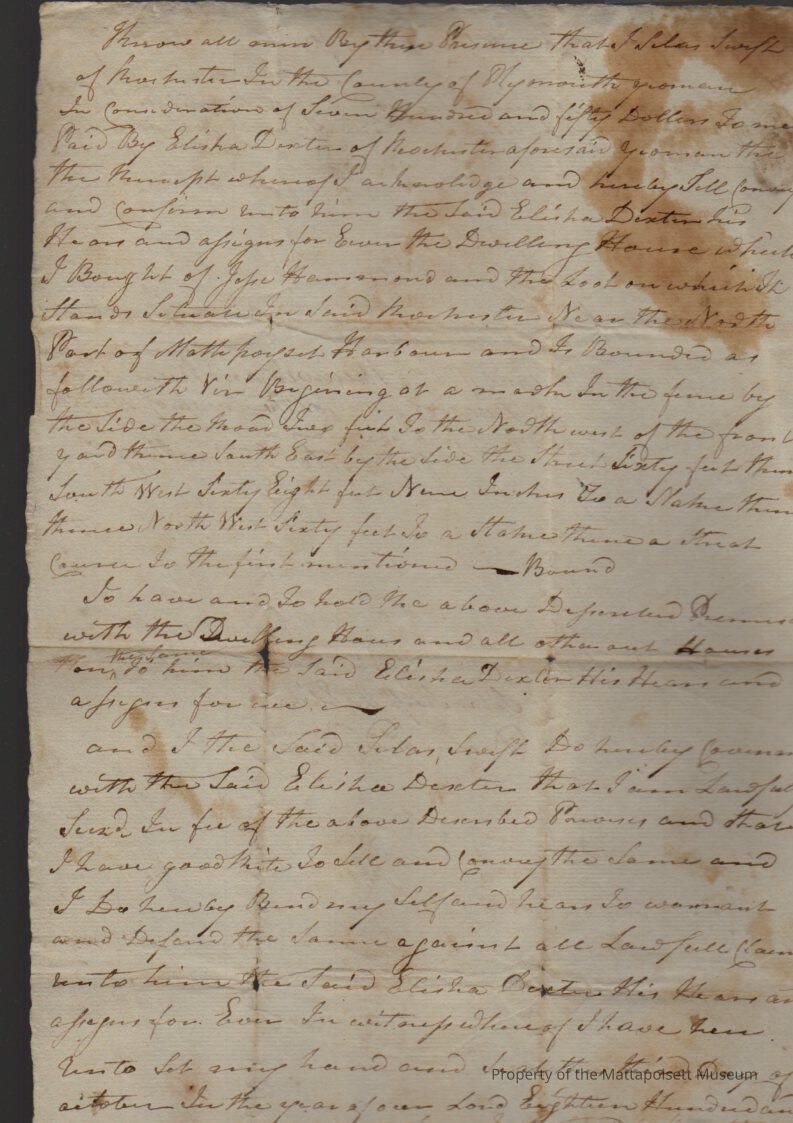 Know all men By these Presence that I Silas Swift
of Rochester In the County of Plymouth yeoman
In Consideration of Seven Hundred and fifty Dollers To me
Paid By Elisha Dexter of Rochester aforesaid yeoman the
the Receipt whereof I acknolidge and hereby Sell Convey
and Confirm unto him the Said Elisha Dexter his
Hears and assigns for Ever the Dwelling House which
I Bought of Jesse Hammond and the Loot on which It
Stands Situate In Said Rochester Near the North
Part of Mathpoyset Harbour and Is Bounded as
followeth Viz Begining at a mark In the fence by
the Side the Road feet To the North west of the front
yard thence South East by the Side the Street Sixty feet then
South West Sixty Eight feet Nine Inches To a Stake then
thence North West Sixty feet To a Stake thence a Strat
Course to the first mentioned Bound
To have and to hold the above Discribed Premis
with the Dwelling Hous and all other out Houses
the Same
on to him the Said Elisha Dexter His Hears and
assigns for
and I the Said Silas Swift Do hereby Covenn
with the Said Elisha Dexter that I am Lawful
Seizd In fee of the above Described Premises and that
I have good Rite To Sell and Convey the Same and
I Do hereby Bend my Self and hears To warrant
and Defand the Same against all Lawfull Claim
unto him the Said Elisha Dexter His Hears an
assigns for Ever In witness whereof I have here
unto Set my hand and Seal this third Day of
october In the year of our Lord Eighteen Hundred an
Property of the Mattapoisett Museum